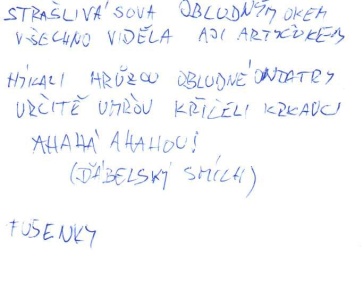 STRAŠLIVÁ SOVA OBLUDNÝM OKEM
VŠECHNO VIDĚLA AJI ARTYČŮKEM
HÝKALI HRŮZOU OBLUDNÉ ONDATRY
URČITĚ UMŘOU KŘIČELI KRKAVCI
AHAHÁ AHAHOU!
(ĎÁBELSKÝ SMÍCH)
FUŠENKY